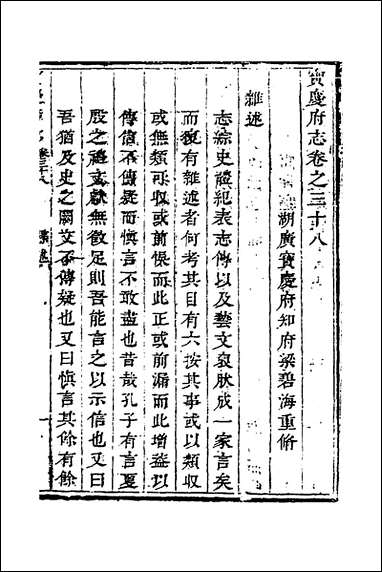 寶慶府志卷之三十八
湖廣寶慶府知府梁碧海重脩
雜述
志綜史讀紀表志傳以及藝文裒肰成一家言矣
而復有雜述者何考其目有六按其事或以類收
或無類可收或前悞而此正或前漏而此增葢以
傳信不傳疑而慎言不敢盡也昔哉孔子有言夏
殷之禮文獻無徵足則吾能言之以示信也又曰
吾猶及史之闕文不傳疑也又曰愼言其餘有餘
卷三十八
雜述
一